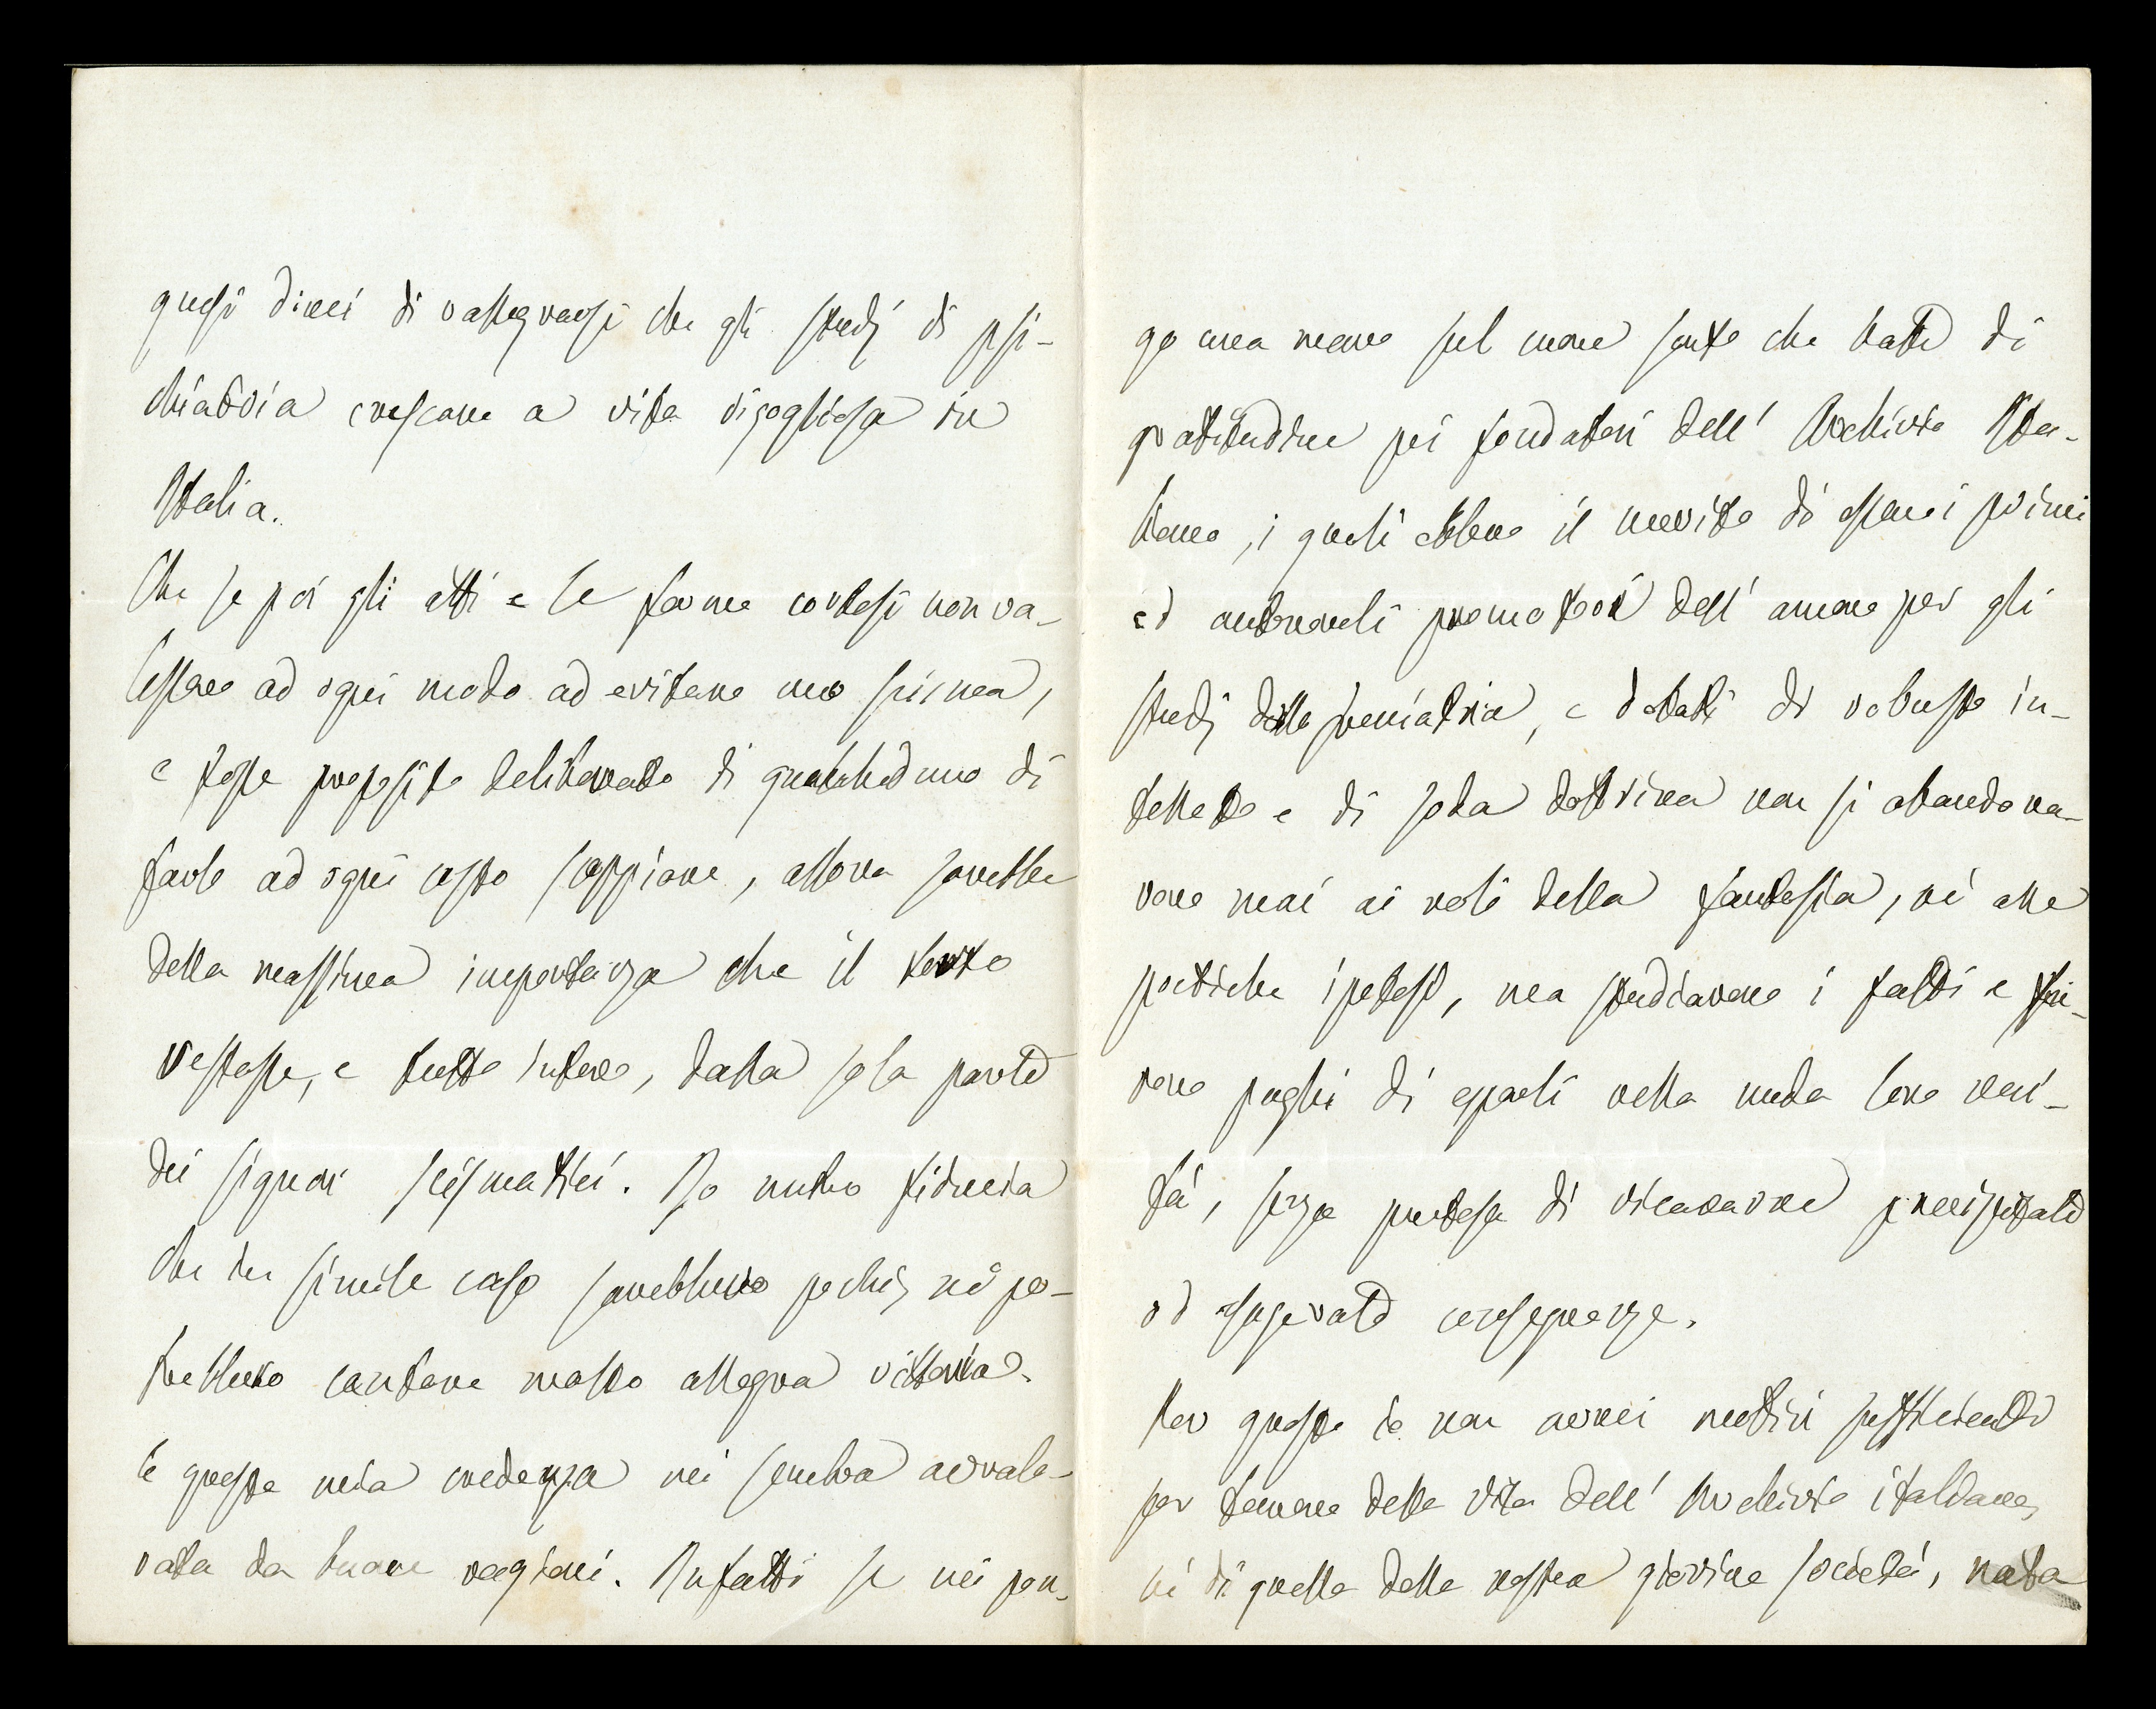 quasi direi di rallegrarsi che gli studj di psi-
chiatria crescano a vita rigogliosa in
Italia.
Che se poi gli atti e le forme cortesi non va-
lessero ad ogni modo ad evitare uno scisma,
e fosse proposito deliberato di qualcheduno di
farlo ad ogni costo scoppiare, allora sarebbe
della massima importanza che il torto
restasse, e tutto intero, dalla sola parte
dei signori scismatici. Io nutro fiducia
che in simile caso sarebbero pochi, nè po-
trebbero cantare molto allegra vittoria.
E questa mia credenza mi sembra avvalo-
rata da buone ragioni. Infatti se mi pon-
go una mano sul cuore sento che batte di
gratitudine pei fondatori dell' Archivio Ita-
liano, i quali ebbero il merito di essere i primi
ed autorevoli promotori dell' amore per gli
studj della freniatria, e dotati di robusto in-
telletto e di soda dottrina non si abbandona-
rono mai ai voli della fantasia, nè alle
poetiche ipotesi, ma studiarono i fatti e fu-
rono paghi di esporli nella nuda loro veri-
tà, senza pretesa di ricavarne precipitate
od esagerate conseguenze.
Per questo io non avrei motivi sufficienti
per temere della vita dell' Archivio italiano,
nè di quella della nostra giovine società, nata